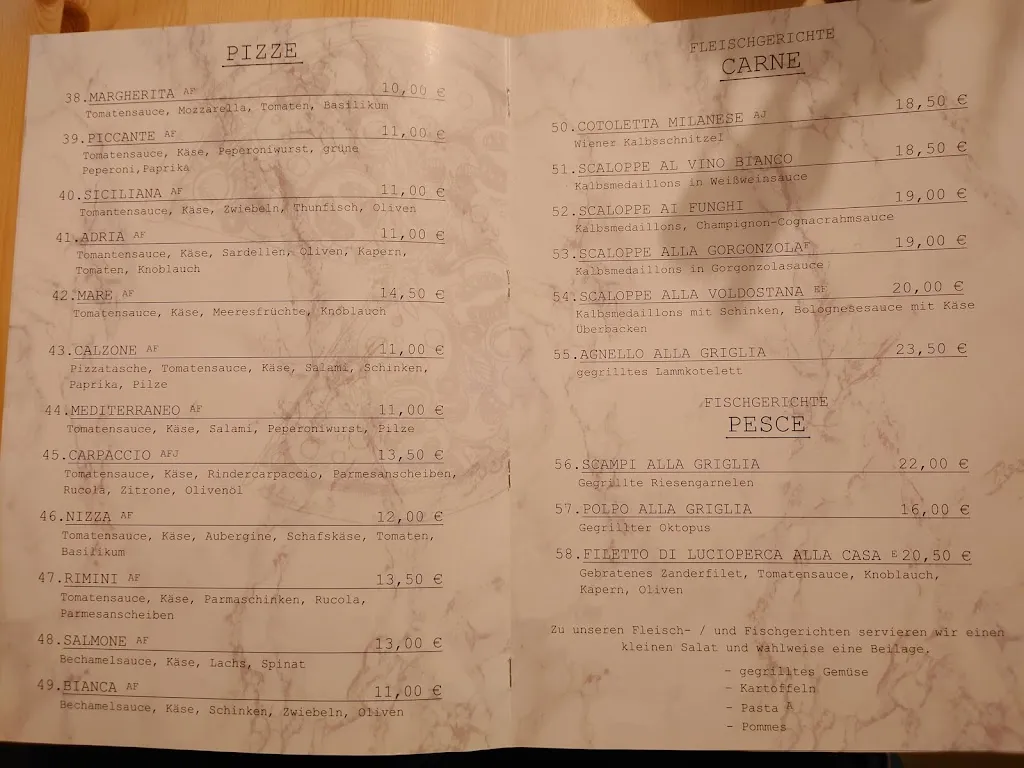 PIZZE
38.MARGHERITA AF 10,00 €
Tomatensauce, Mozzarella, Tomaten, Basilikum
39.PICCANTE AF 11,00 €
Tomatensauce, Käse, Peperoniwurst, grüne
Peperoni,Paprika
40.SICILIANA AF 11,00 €
Tomantensauce, Käse, Zwiebeln, Thunfisch, Oliven
41.ADRIA AF 11,00 €
Tomantensauce, Käse, Sardellen, Oliven, Kapern,
Tomaten, Knoblauch
42.MARE AF 14,50 €
Tomatensauce, Käse, Meeresfrüchte, Knoblauch
43.CALZONE AF 11,00 €
Pizzatasche, Tomatensauce, Käse, Salami, Schinken,
Paprika, Pilze
44.MEDITERRANEO AF 11,00 €
Tomatensauce, Käse, Salami, Peperoniwurst, Pilze
45.CARPACCIO AFJ 13,50 €
Tomatensauce, Käse, Rindercarpaccio, Parmesanscheiben,
Rucola, Zitrone, Olivenöl
46.NIZZA AF 12,00 €
Tomatensauce, Käse, Aubergine, Schafskäse, Tomaten,
Basilikum
47.RIMINI AF 13,50 €
Tomatensauce, Käse, Parmaschinken, Rucola,
Parmesanscheiben
48.SALMONE AF 13,00 €
Bechamelsauce, Käse, Lachs, Spinat
49.BIANCA AF 11,00 €
Bechamelsauce, Käse, Schinken, Zwiebeln, Oliven
FLEISCHGERICHTE
CARNE
50.COTOLETTA MILANESE AJ 18,50 €
Wiener Kalbsschnitzel
51.SCALOPPE AL VINO BIANCO 18,50 €
Kalbsmedaillons in Weißweinsauce
52.SCALOPPE AI FUNGHI 19,00 €
Kalbsmedaillons, Champignon-Cognacrahmsauce
53.SCALOPPE ALLA GORGONZOLA F 19,00 €
Kalbsmedaillons in Gorgonzolasauce
54.SCALOPPE ALLA VOLDOSTANA EF 20,00 €
Kalbsmedaillons mit Schinken, Bolognesesauce mit Käse
Überbacken
55.AGNELLO ALLA GRIGLIA 23,50 €
gegrilltes Lammkotelett
FISCHGERICHTE
PESCE
56.SCAMPI ALLA GRIGLIA 22,00 €
Gegrillte Riesengarnelen
57.POLPO ALLA GRIGLIA 16,00 €
Gegrillter Oktopus
58.FILETTO DI LUCIOPERCA ALLA CASA E 20,50 €
Gebratenes Zanderfilet, Tomatensauce, Knoblauch,
Kapern, Oliven
Zu unseren Fleisch- / und Fischgerichten servieren wir einen
kleinen Salat und wahlweise eine Beilage.
- gegrilltes Gemüse
- Kartoffeln
- Pasta A
- Pommes